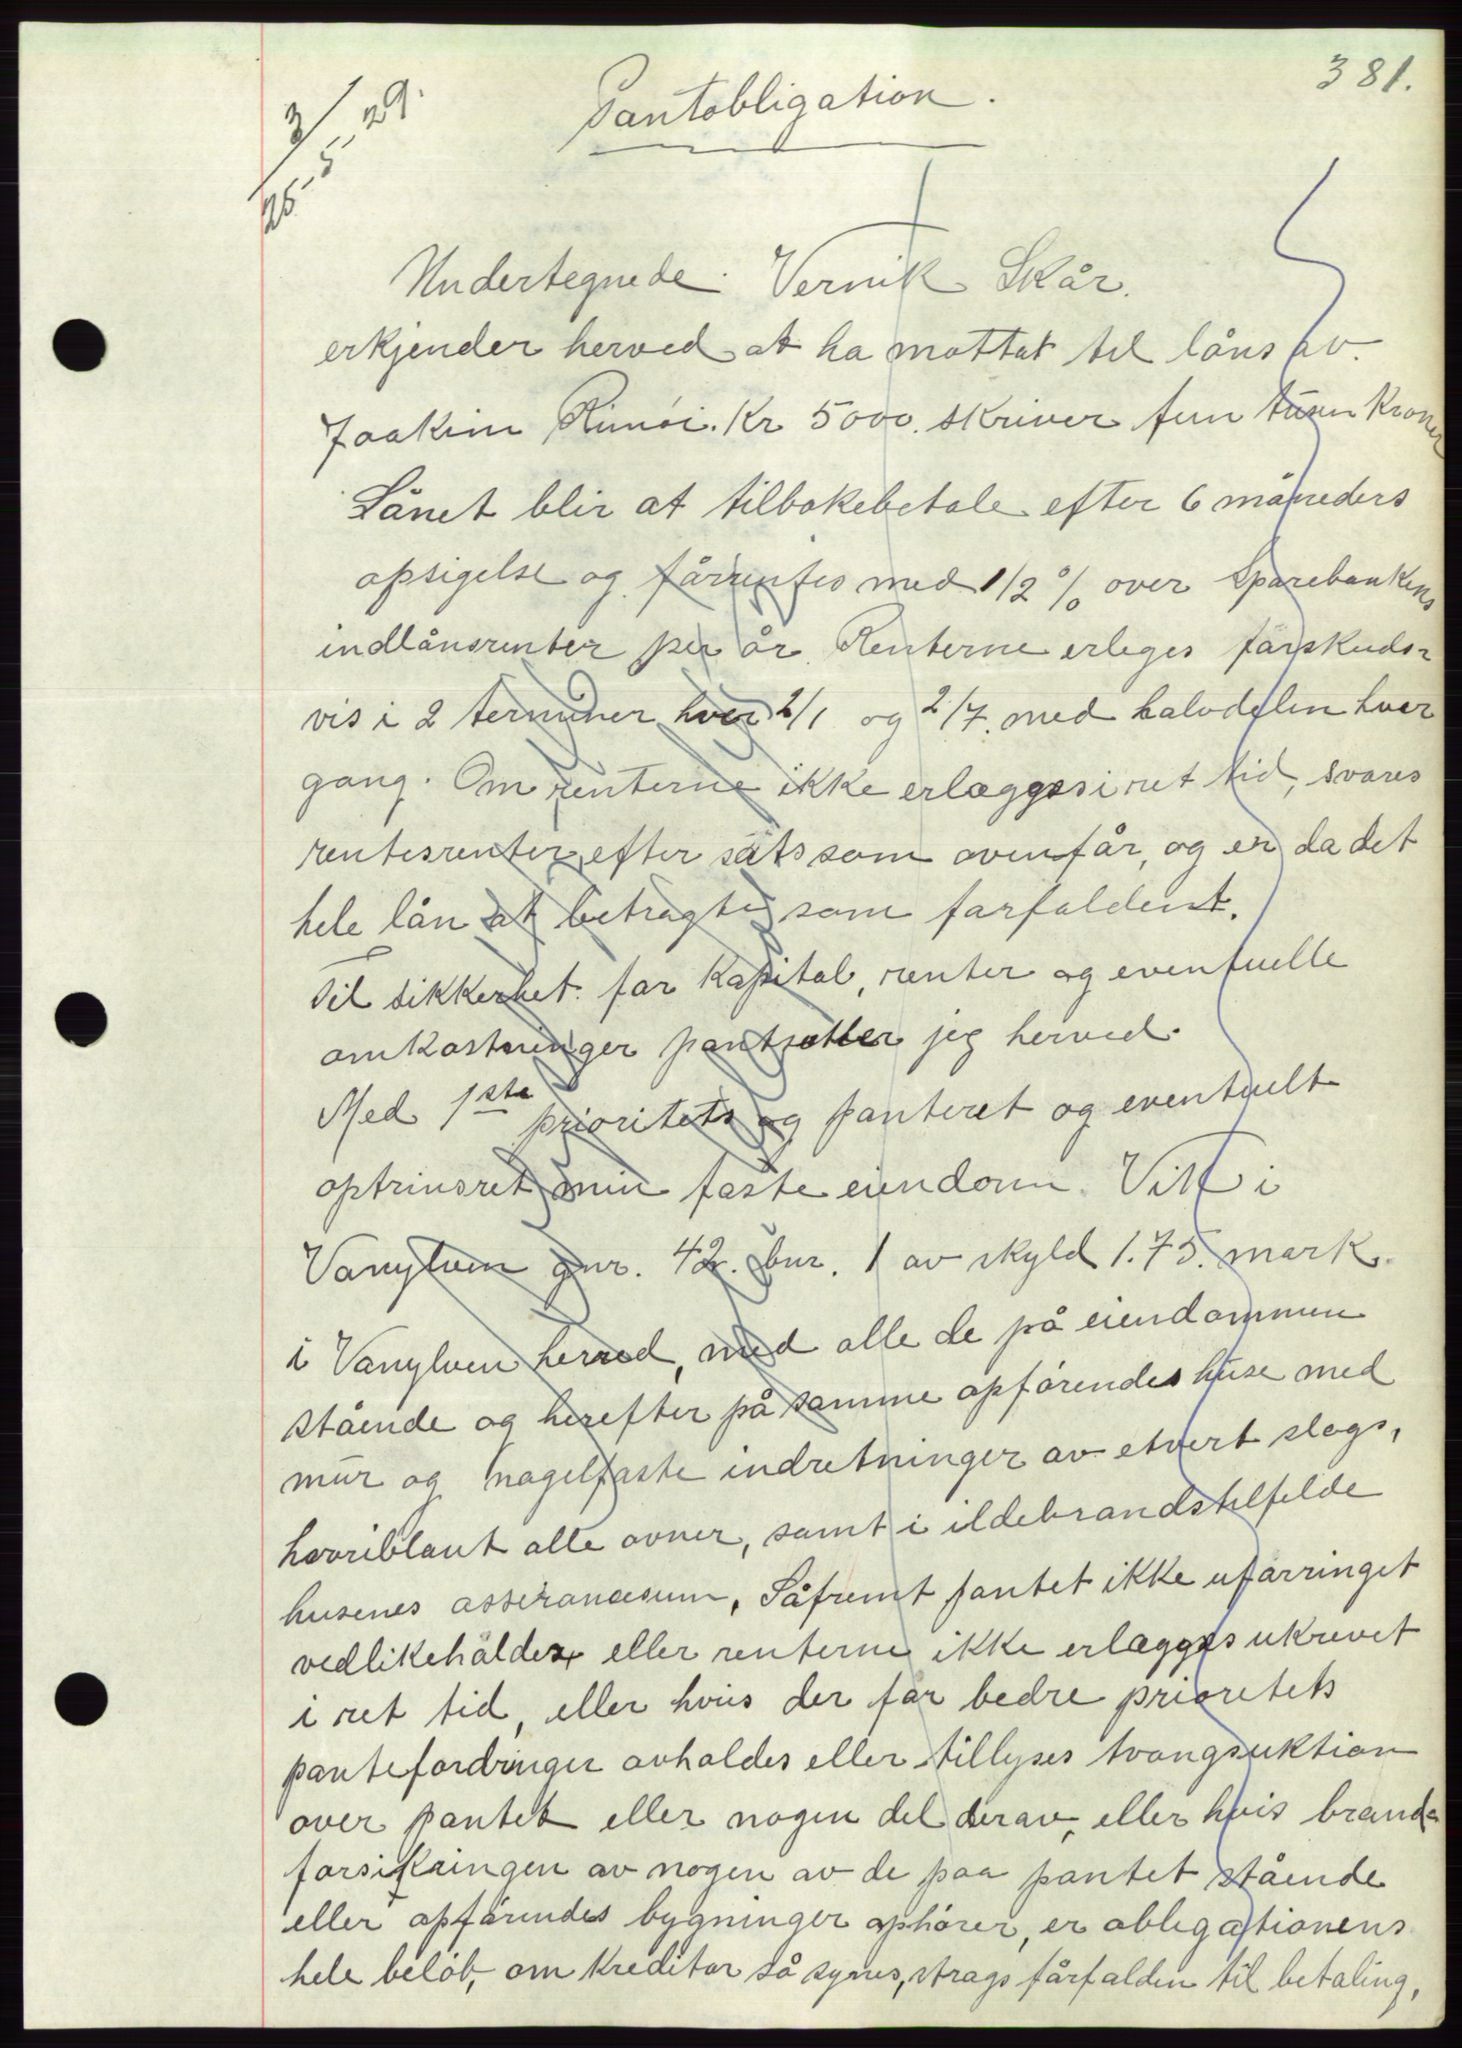 381.
3/25-5-29.
Pantobligation.
Undertegnede Vernik Skår.
erkjender herved at ha mottat til låns av.
Joakim Rimöi. Kr 5000. skriver fem tusen Kroner
Lånet blir at tilbakebetale efter 6 måneders
opsigelse og fårrentes med 1/2 % over Sparebankens
indlånsrenter per år. Renterne erleges fårskuds-
vis i 2 terminer hver 2/1 og 2/7. med halvdelen hver
gang. Om renterne ikke erlægges i ret tid, svares
rentesrenter efter sats som ovenfår, og er da det
hele lån at betragte som farfaldent.
Til sikkerhet for Kapital, renter og eventuelle
omkostninger pantsætter jeg herved.
Med 1ste prioritets og panteret og eventuelt
optrinsret min faste eiendom Vik i
Vanylven gnr. 42. bnr. 1 av skyld 1.75. mark.
i Vanylven herred, med alle de på eiendommen
stående og herefter på samme opförendes huse med
mur og nagelfaste indretninger av etvert slags,
hvoriblant alle ovner, samt i ildebrandstilfelde
husenes assurancesum, Såfremt pantet ikke ufarringet
vedlikeholdes eller renterne ikke erlægges ukrevet
i ret tid, eller hvis der for bedre prioretets
pantefordringer avholdes eller tillyses tvangsuktion
over pantet eller nogen del derav, eller hvis brand-
forsikringen av nogen av de paa pantet stående
eller opförendes bygninger ophörer, er obligationens
hele belöb, om Kreditor så synes, strags fårfalden til betaling,